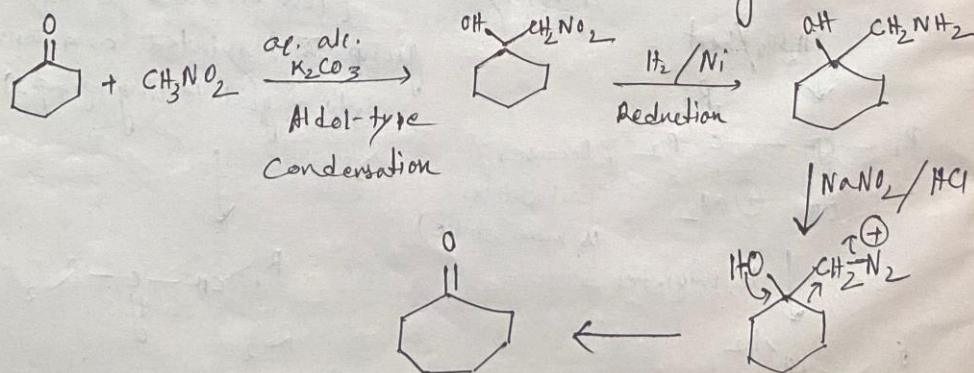 O
+ CH₃NO₂
aq. alc.
K₂CO₃
Aldol-type
Condensation
OH CH₂NO₂
H₂/Ni
Reduction
OH CH₂NH₂
NaNO₂/HCl
HO CH₂-N₂ +
O